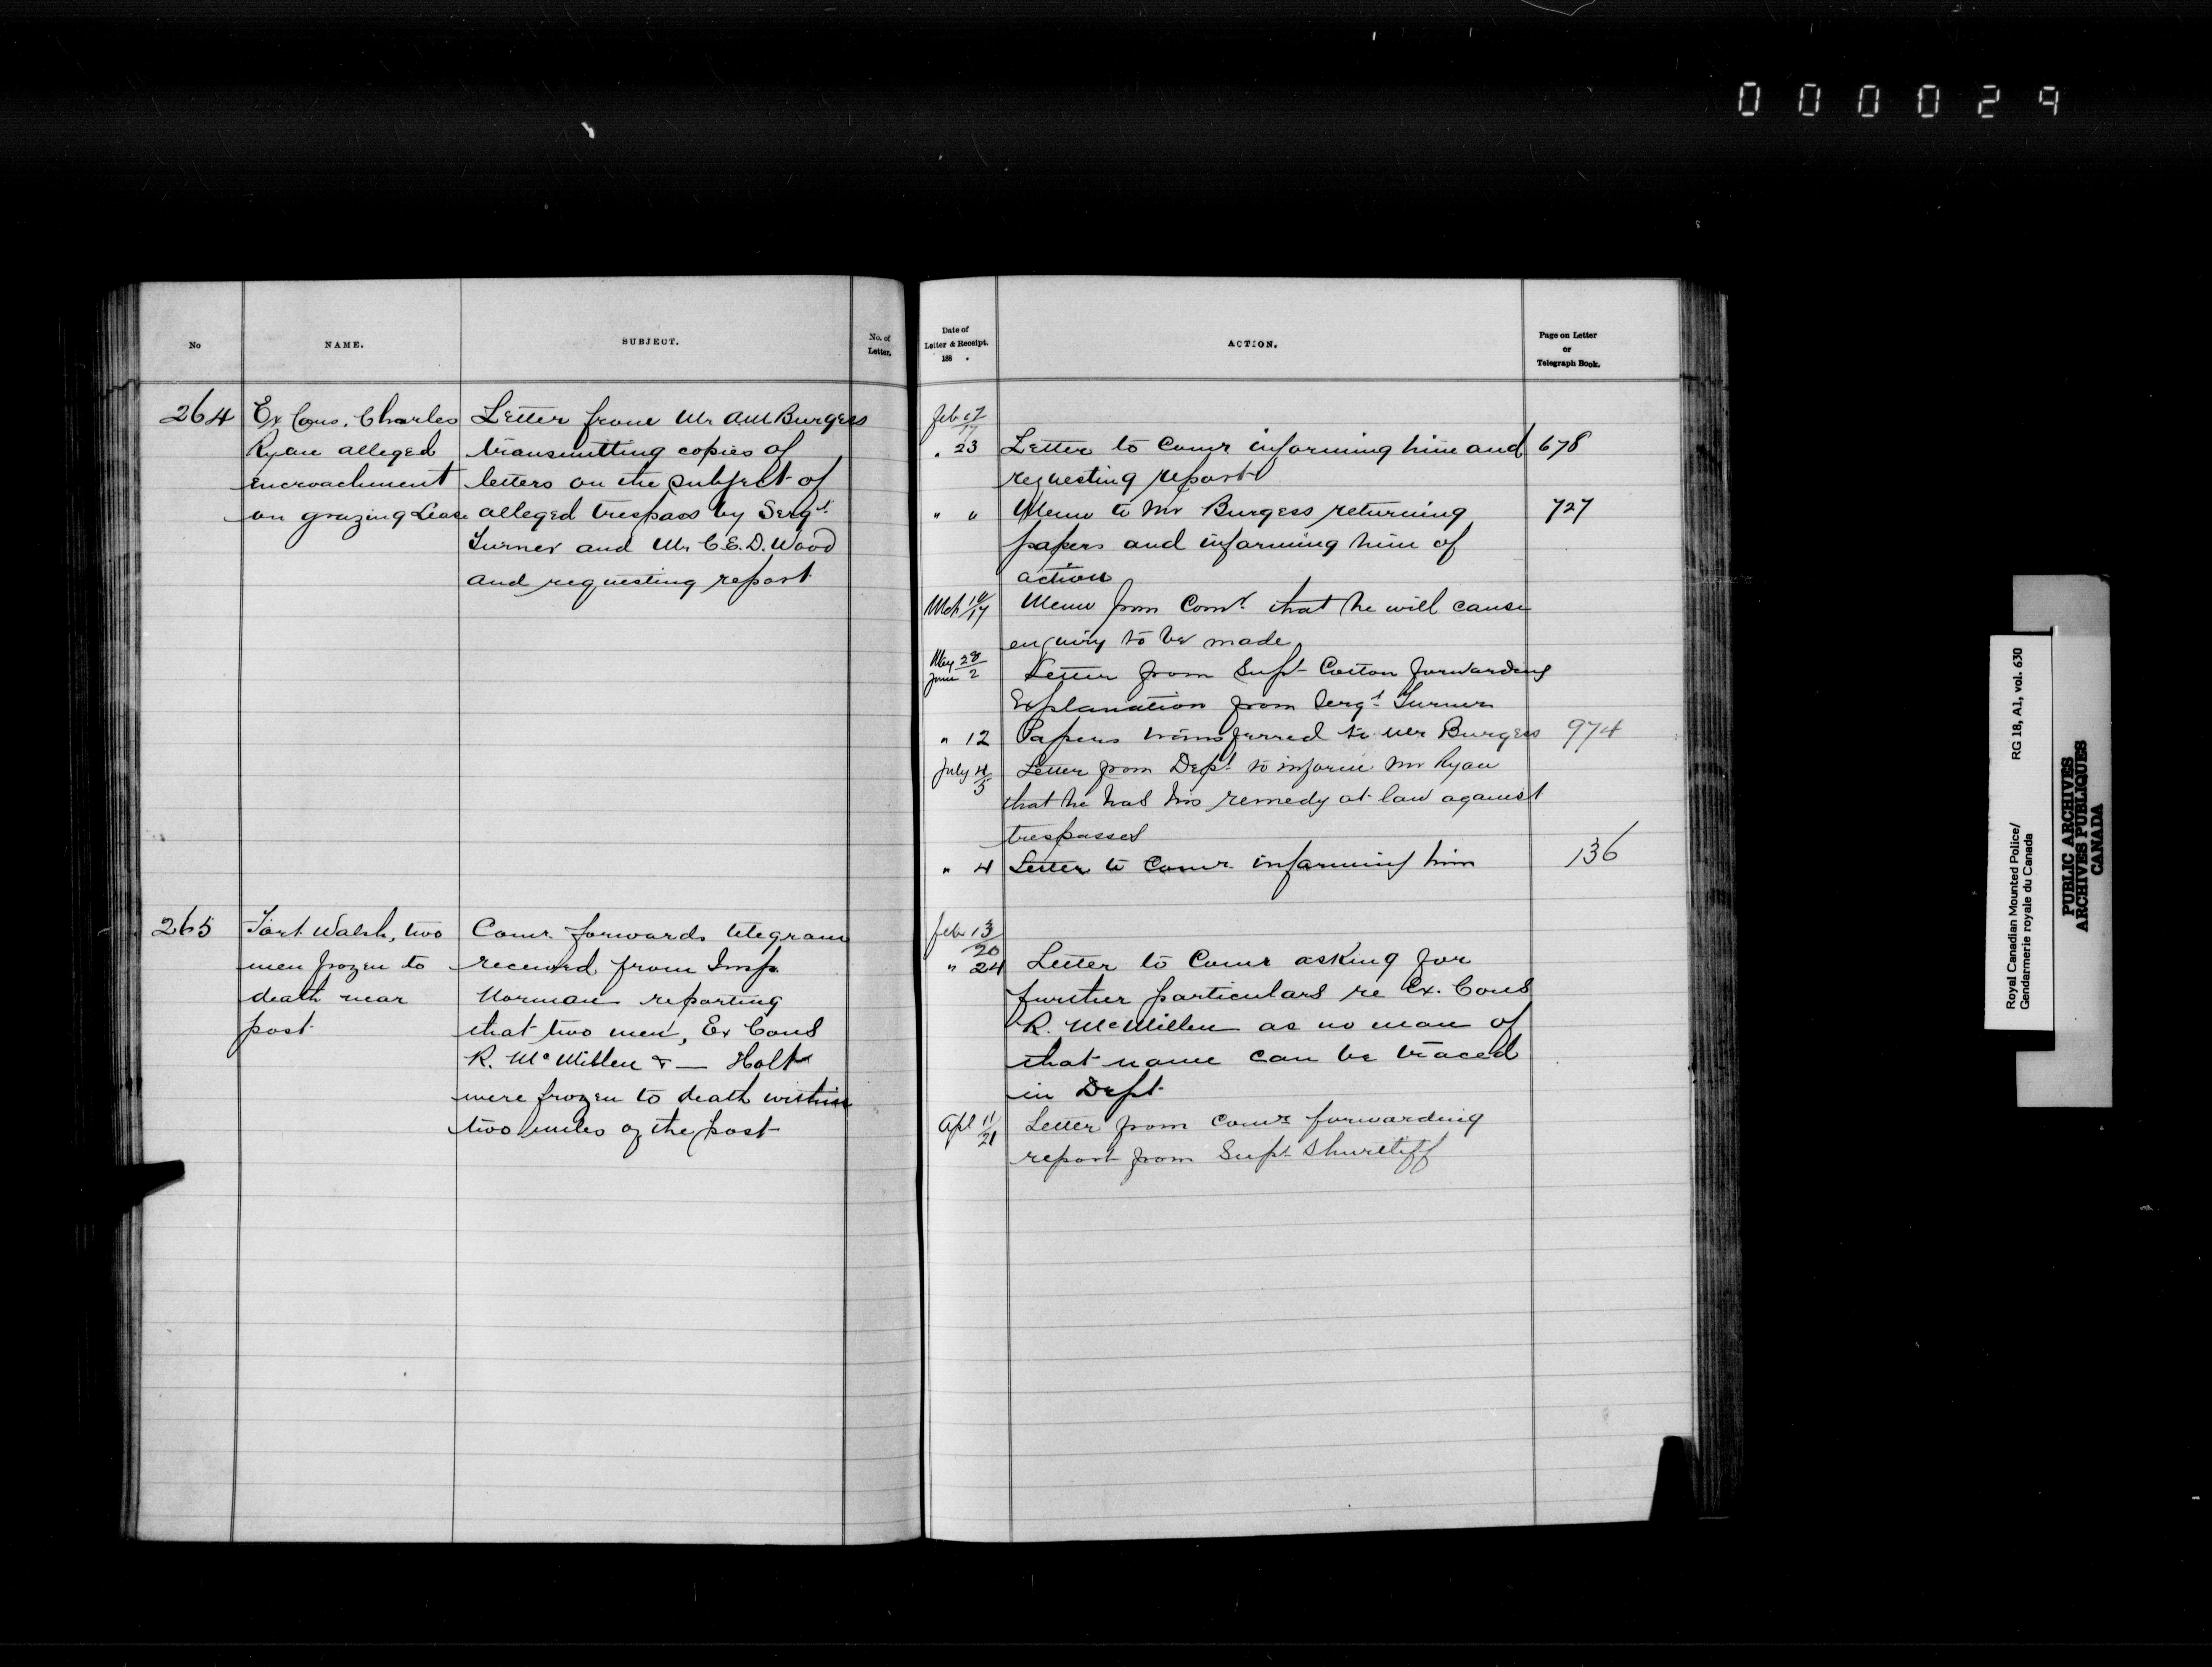 000029
No
NAME.
SUBJECT.
No. of
Letter.
264
Ex Cons. Charles
Ryan alleged
encroachment
on grazing Lease
Letter from Mr AM Burgess
transmitting copies of
letters on the subject of
alleged trespass by Sergt
Turner and Mr C.E.D. Wood
and requesting report
265
Fort Walsh, two
men frozen to
death near
post
Comr forwards telegram
received from Insp.
Norman reporting
that two men, Ex Cons
R. McMillen & — Holt
were frozen to death within
two miles of the post
Date of
Letter & Receipt.
188 .
ACTION.
Page on Letter
or
Telegraph Book.
Feb 17
17
" 23 Letter to Comr informing him and 678
requesting report
" " Memo to Mr Burgess returning 727
papers and informing him of
action
Mch 10/17 Memo from Comr that he will cause
enquiry to be made
May 28
June 2 Letter from Supt Cotton forwarding
Explanation from Sergt Turner
" 12 Papers transferred to Mr Burgess 974
July 4/5 Letter from Dept to inform Mr Ryan
that he has his remedy at law against
trespasses
" 4 Letter to Comr informing him 136
Feb 13
20
" 24 Letter to Comr asking for
further particulars re Ex. Cons
R. McMillen as no man of
that name can be traced
in Dept
Apl 11/21 Letter from Comr forwarding
report from Supt Shurtliff
Royal Canadian Mounted Police/ RG 18, A1, vol. 630
Gendarmerie royale du Canada
PUBLIC ARCHIVES
ARCHIVES PUBLIQUES
CANADA